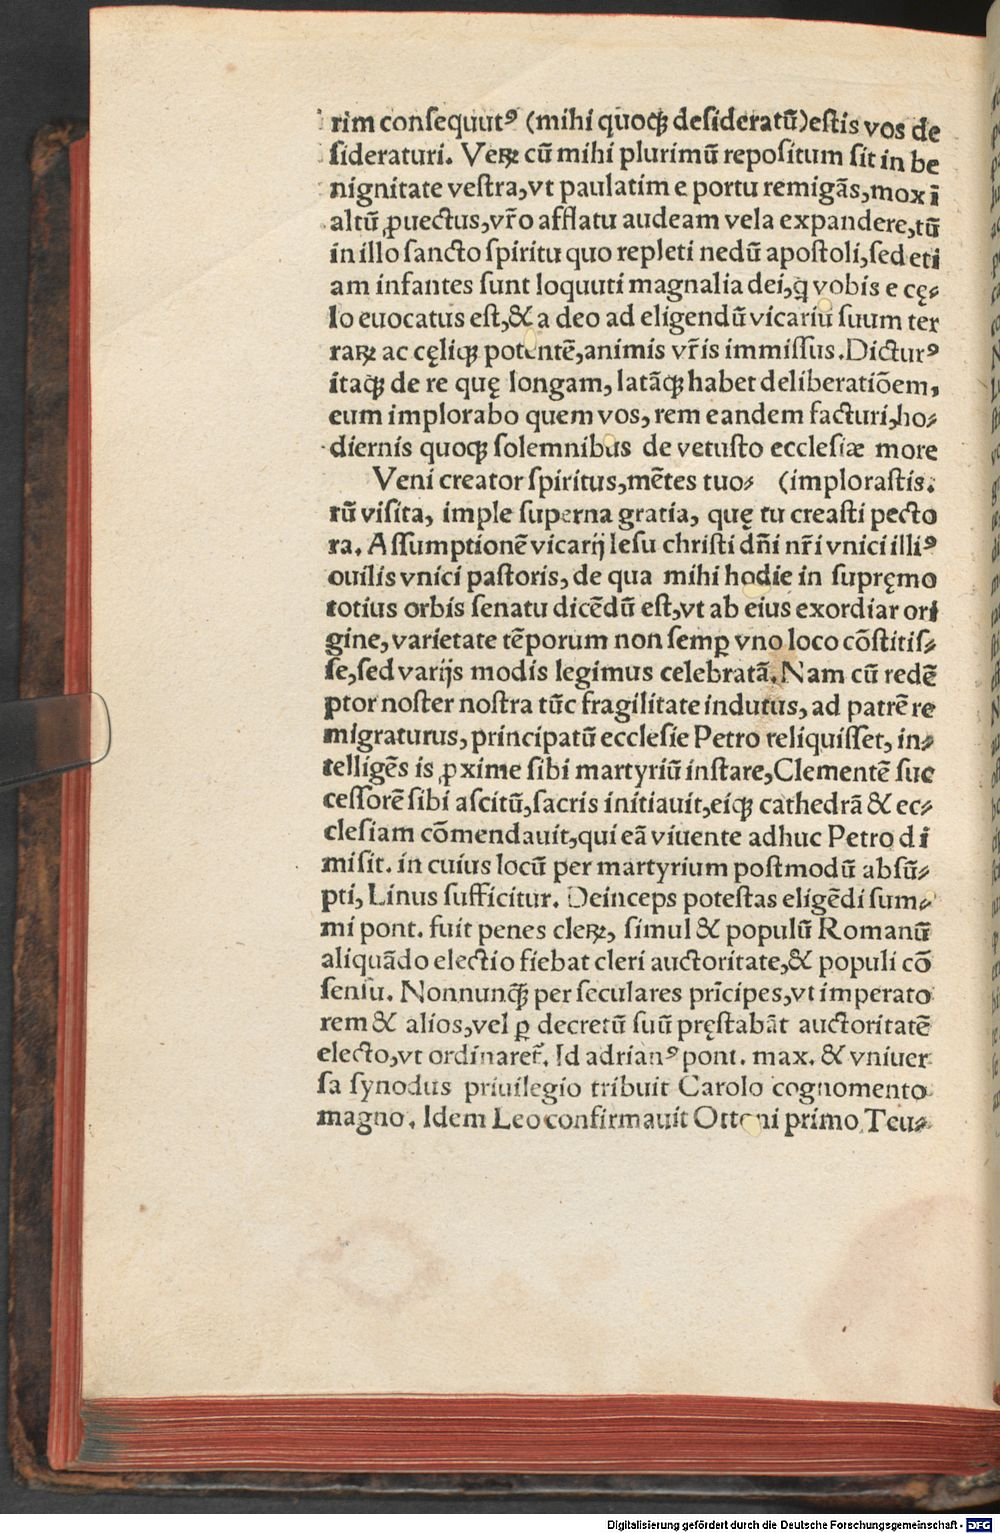 rim consequutꝰ (mihi quoqꝫ desideratū) estis vos de
sideraturi. Veꝝ cū mihi plurimū repositum sit in be
nignitate vestra, vt paulatim e portu remigās, mox ī
altū ꝓuectus, vr̄o afflatu audeam vela expandere, tū
in illo sancto spiritu quo repleti nedū apostoli, sed eti
am infantes sunt loquuti magnalia dei, q̄ vobis e cę⸗
lo euocatus est, & a deo ad eligendū vicariū suum ter
raꝝ ac cęliqꝫ potentē, animis vr̄is immissus. Dicturꝰ
itaqꝫ de re quę longam, latāqꝫ habet deliberatiōem,
eum implorabo quem vos, rem eandem facturi, ho⸗
diernis quoqꝫ solemnibus de vetusto ecclesiæ more
Veni creator spiritus, mētes tuo⸗ (implorastis.
rū visita, imple superna gratia, quę tu creasti pecto
ra. Assumptionē vicarij Iesu christi dn̄i nr̄i vnici illiꝰ
ouilis vnici pastoris, de qua mihi hodie in supręmo
totius orbis senatu dicēdū est, vt ab eius exordiar ori
gine, varietate tēporum non semꝑ vno loco cōstitis⸗
se, sed varijs modis legimus celebratā. Nam cū redē
ptor noster nostra tūc fragilitate indutus, ad patrē re
migraturus, principatū ecclesie Petro reliquisset, in⸗
telligēs is ꝓxime sibi martyriū instare, Clementē suc
cessorē sibi ascitū, sacris initiauit, eiqꝫ cathedrā & ec⸗
clesiam cōmendauit, qui eā viuente adhuc Petro di
misit. in cuius locū per martyrium postmodū absū⸗
pti, Linus sufficitur. Deinceps potestas eligēdi sum⸗
mi pont. fuit penes cleꝝ, simul & populū Romanū
aliquādo electio fiebat cleri auctoritate, & populi cō
sensu. Nonnunqꝫ per seculares prīcipes, vt imperato
rem & alios, vel ꝑ decretū suū pręstabāt auctoritatē
electo, vt ordinaret̄. Id adrianꝰ pont. max. & vniuer
sa synodus priuilegio tribuit Carolo cognomento
magno. Idem Leo confirmauit Ottoni primo Teu⸗
Digitalisierung gefördert durch die Deutsche Forschungsgemeinschaft - DFG